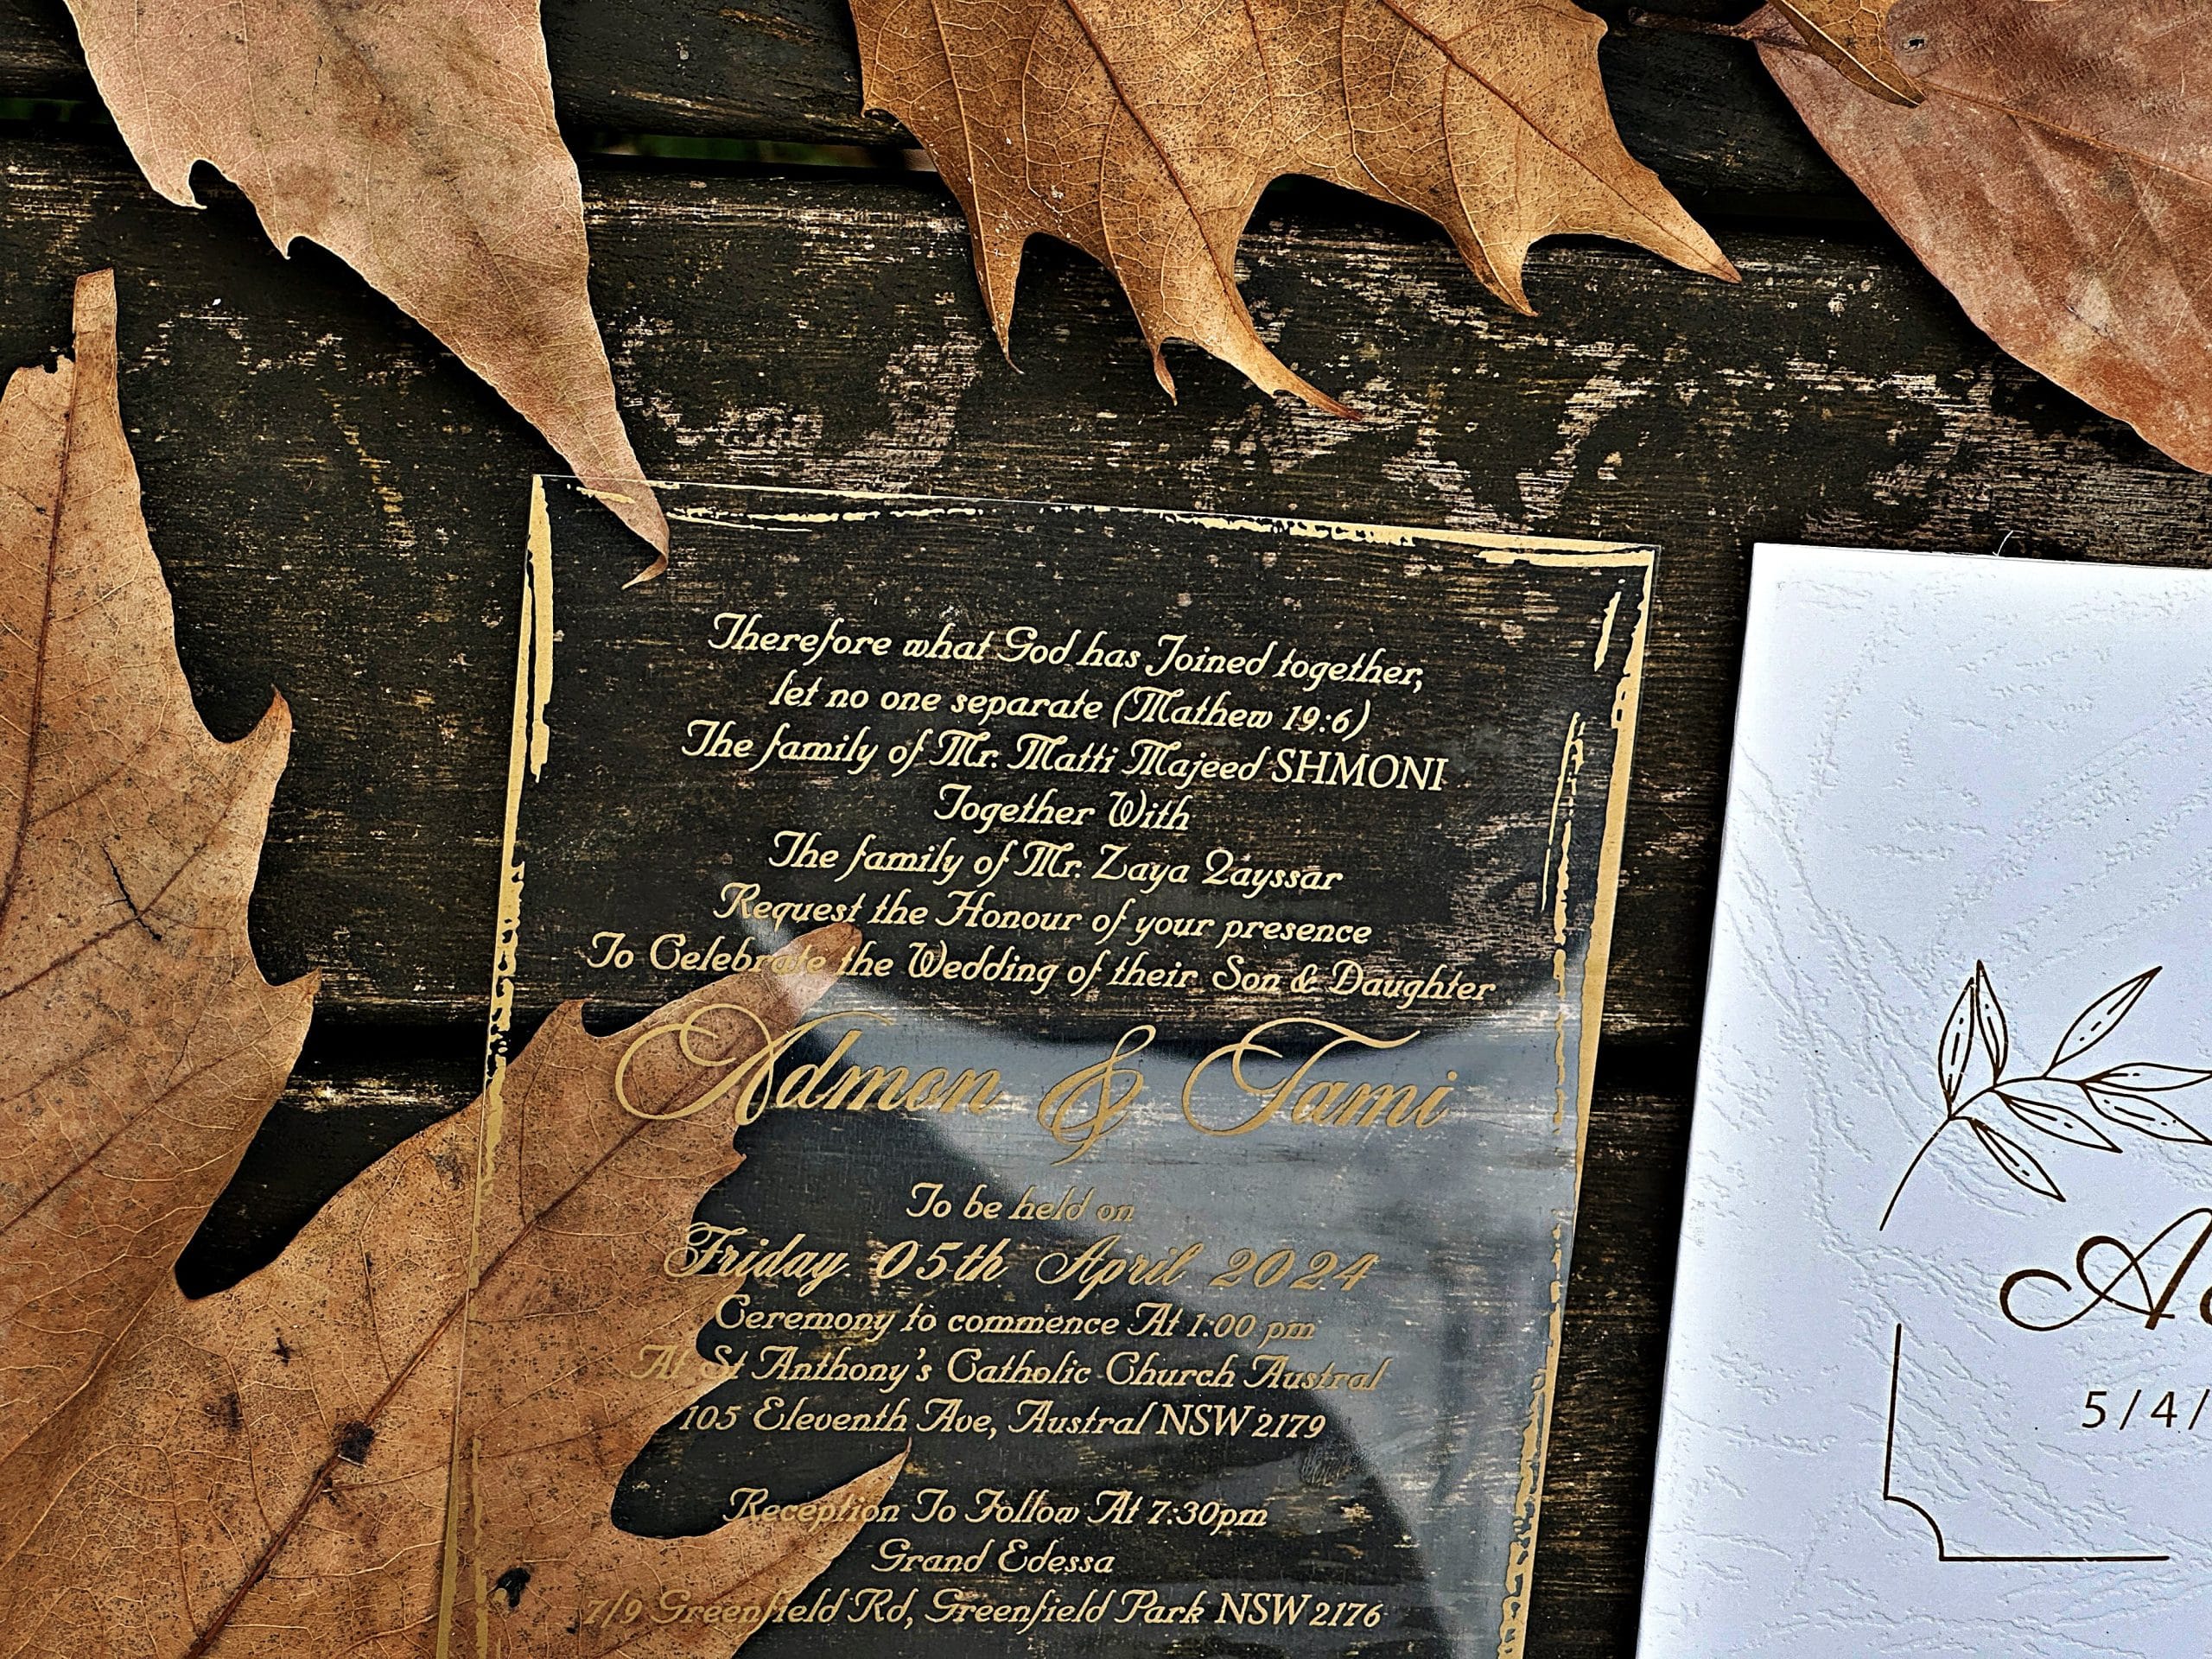 Therefore what God has Joined together,
let no one separate (Mathew 19:6)
The family of Mr. Matti Majeed SHMONI
Together With
The family of Mr. Zaya Qayssar
Request the Honour of your presence
To Celebrate the Wedding of their Son & Daughter
Admon & Tami
To be held on
Friday 05th April 2024
Ceremony to commence At 1:00 pm
At St Anthony's Catholic Church Austral
105 Eleventh Ave, Austral NSW 2179
Reception To Follow At 7:30pm
Grand Edessa
7/9 Greenfield Rd, Greenfield Park NSW 2176
A
5/4/